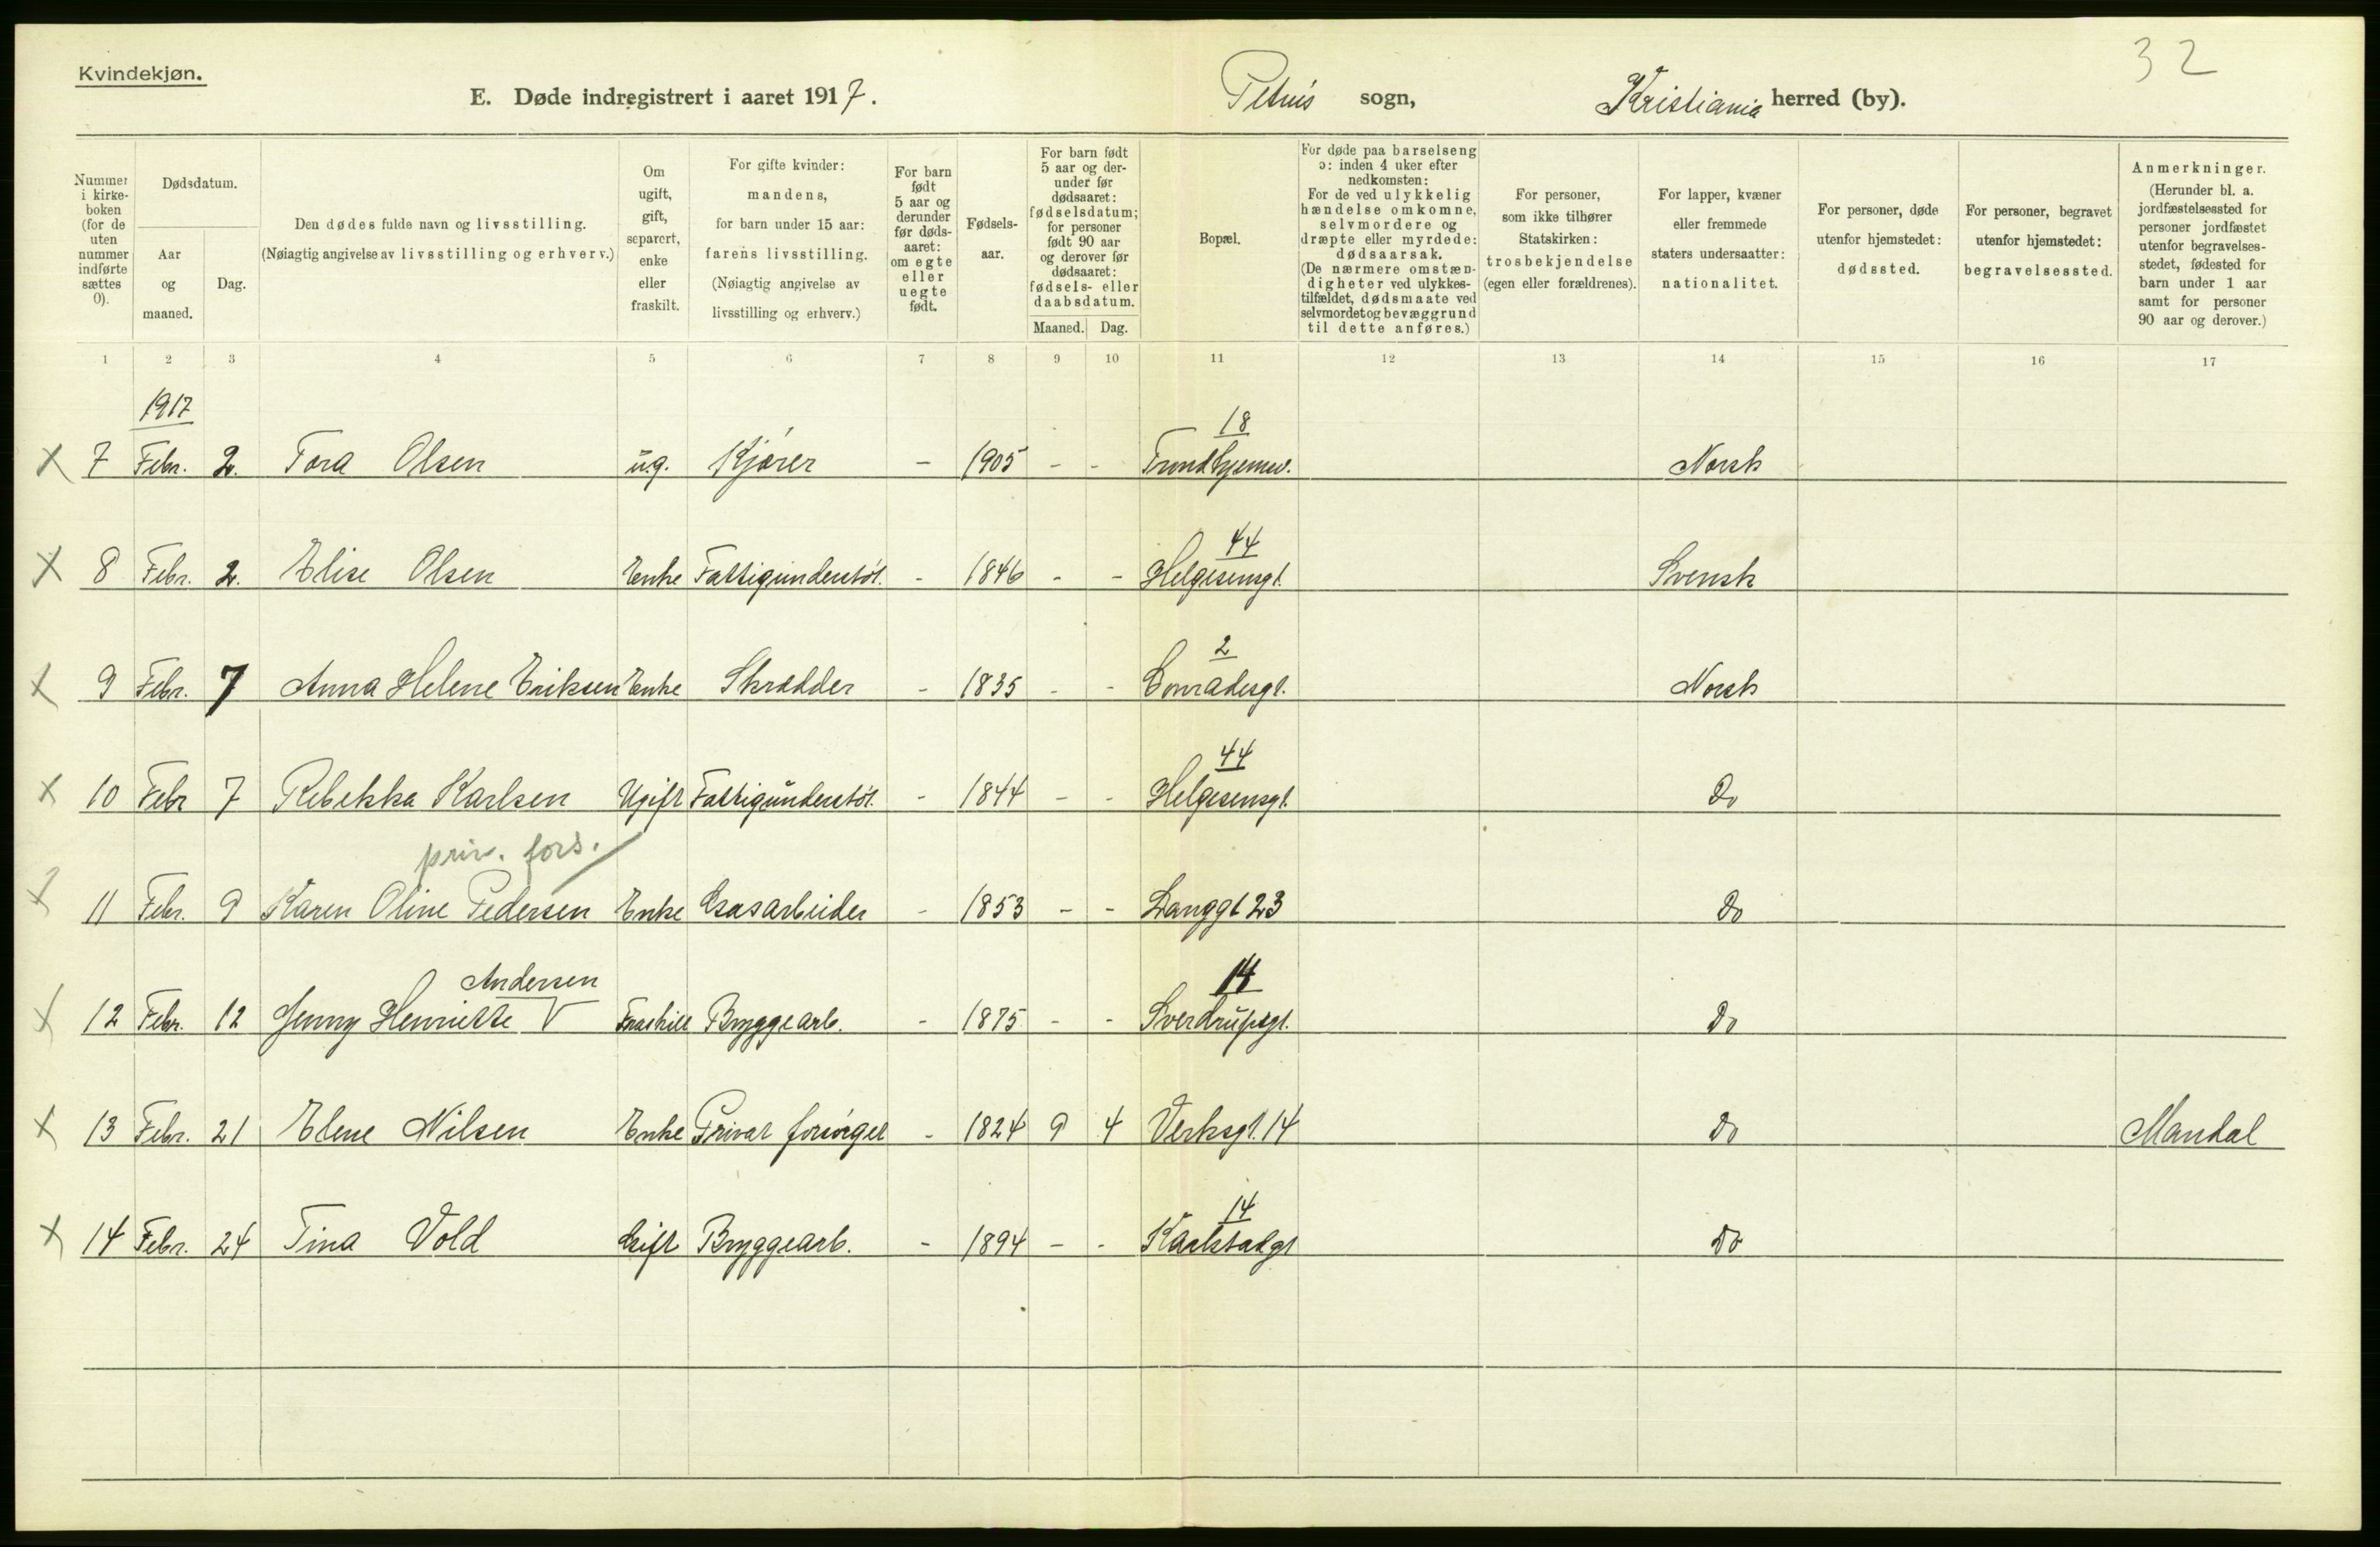 Kvindekjøn.
32
E. Døde indregistrert i aaret 1917.
Petrus sogn,
Kristiania herred (by).
Nummer i kirkeboken (for de uten nummer indførte sættes 0).
Dødsdatum.
Aar og maaned.
Dag.
Den dødes fulde navn og livsstilling.
(Nøiagtig angivelse av livsstilling og erhverv.)
Om ugift, gift, separert, enke eller fraskilt.
For gifte kvinder: mandens, for barn under 15 aar: farens livsstilling. (Nøiagtig angivelse av livsstilling og erhverv.)
For barn født 5 aar og derunder før dødsaaret: om egte eller uegte født.
Fødselsaar.
For barn født 5 aar og derunder før dødsaaret: fødselsdatum; for personer født 90 aar og derover før dødsaaret: fødsels- eller daabsdatum.
Maaned. Dag.
Bopæl.
For døde paa barselseng ɔ: inden 4 uker efter nedkomsten: For de ved ulykkelig hændelse omkomne, selvmordere og dræpte eller myrdede: dødsaarsak. (De nærmere omstændigheter ved ulykkestilfældet, dødsmaate ved selvmordet og bevæggrund til dette anføres.)
For personer, som ikke tilhører Statskirken: trosbekjendelse (egen eller forældrenes).
For lapper, kvæner eller fremmede staters undersaatter: nationalitet.
For personer, døde utenfor hjemstedet: dødssted.
For personer, begravet utenfor hjemstedet: begravelsessted.
Anmerkninger. (Herunder bl. a. jordfæstelsessted for personer jordfæstet utenfor begravelsesstedet, fødested for barn under 1 aar samt for personer 90 aar og derover.)
1 2 3 4 5 6 7 8 9 10 11 12 13 14 15 16 17
1917
18
x 7 Febr. 2. Tora Olsen ug. Kjører - 1905 - - Trondhjemsv. Norsk
44
x 8 Febr. 2. Elise Olsen Enke Fattigunderstøt. - 1846 - - Helgesensgt. Svensk
2
x 9 Febr. 7 Anna Helene Eriksen Enke Skrædder - 1835 - - Conradesgt. Norsk
44
x 10 Febr 7 Rebekka Karlsen Ugift Fattigunderstøt. - 1844 - - Helgesensgt. Do
priv. fors.
x 11 Febr. 9 Karen Oline Pedersen Enke Gasarbeider - 1853 - - Langgt 23 Do
Andersen 14
x 12 Febr. 12 Jenny Henriette V Fraskilt Bryggearb. - 1875 - - Sverdrupsgt. Do
x 13 Febr. 21 Elene Nilsen Enke Privat forsørget - 1824 9 4 Verksgt. 14 Do Mandal
14
x 14 Febr. 24 Tina Vold Gift Bryggearb. - 1894 - - Karlstadgt Do